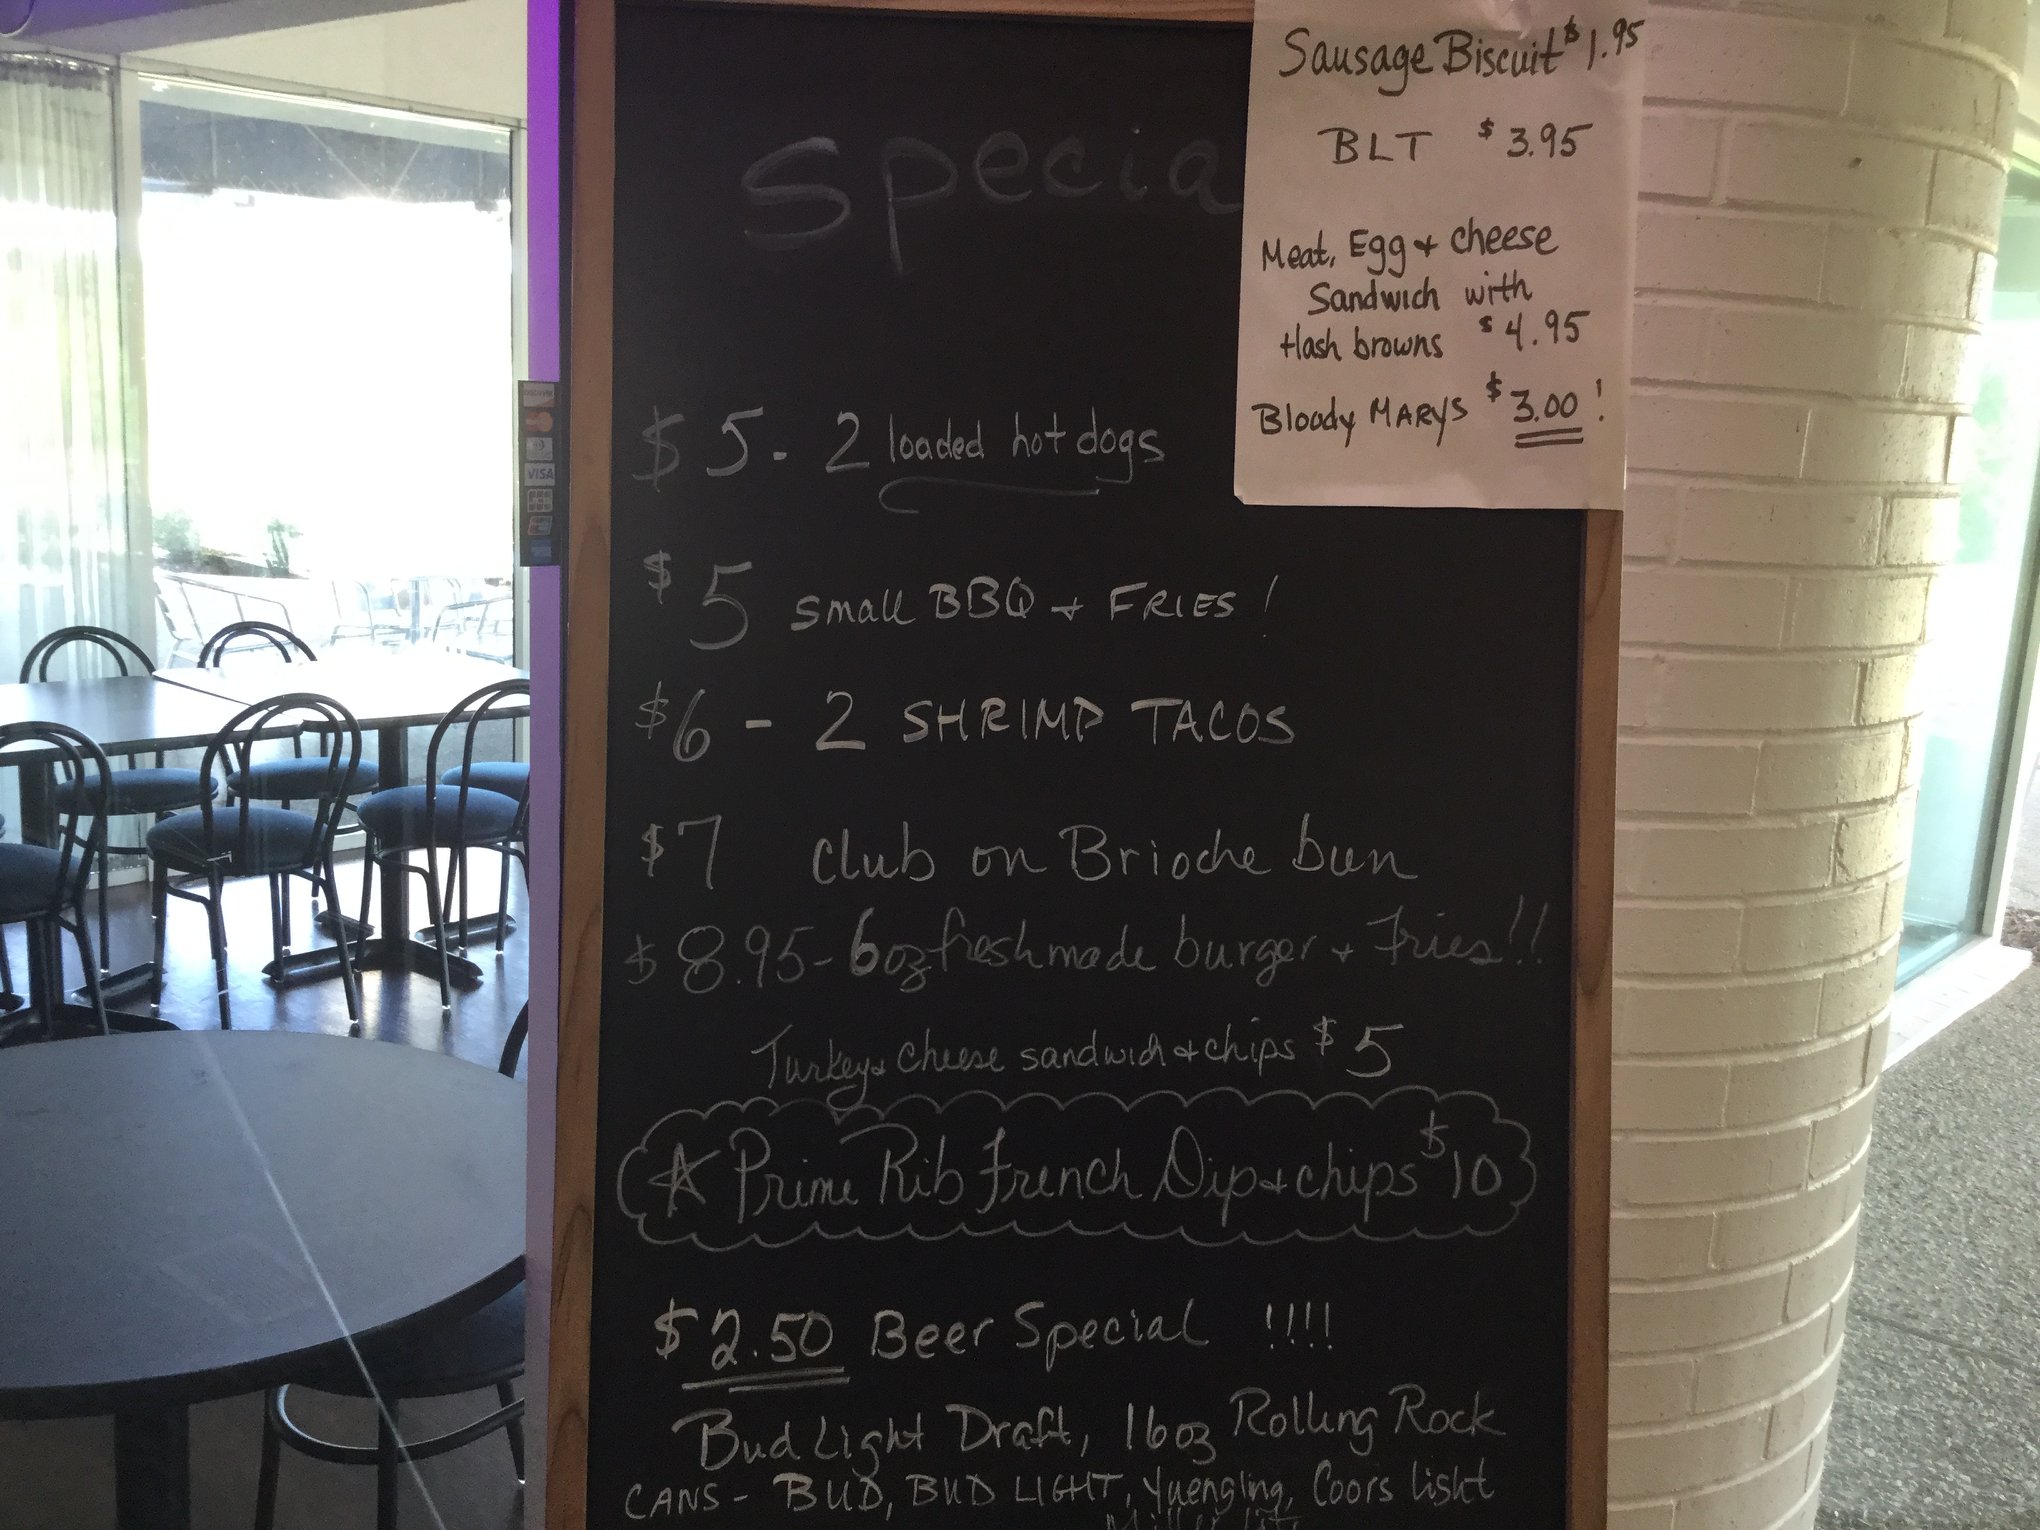 Specia
$5- 2 loaded hot dogs
$5 small BBQ + FRIES!
$6 - 2 SHRIMP TACOS
$7 club on Brioche bun
$8.95- 6oz fresh made burger + Fries!!
Turkey + Cheese sandwich + chips $5
Prime Rib French Dip + chips $10
$2.50 Beer Special !!!!
Bud Light Draft, 16oz Rolling Rock
CANS- BUD, BUD LIGHT, Yuengling, Coors light
Miller lite
Sausage Biscuit $1.95
BLT $3.95
Meat, Egg + cheese
Sandwich with
Hash browns $4.95
Bloody MARYS $3.00!
VISA